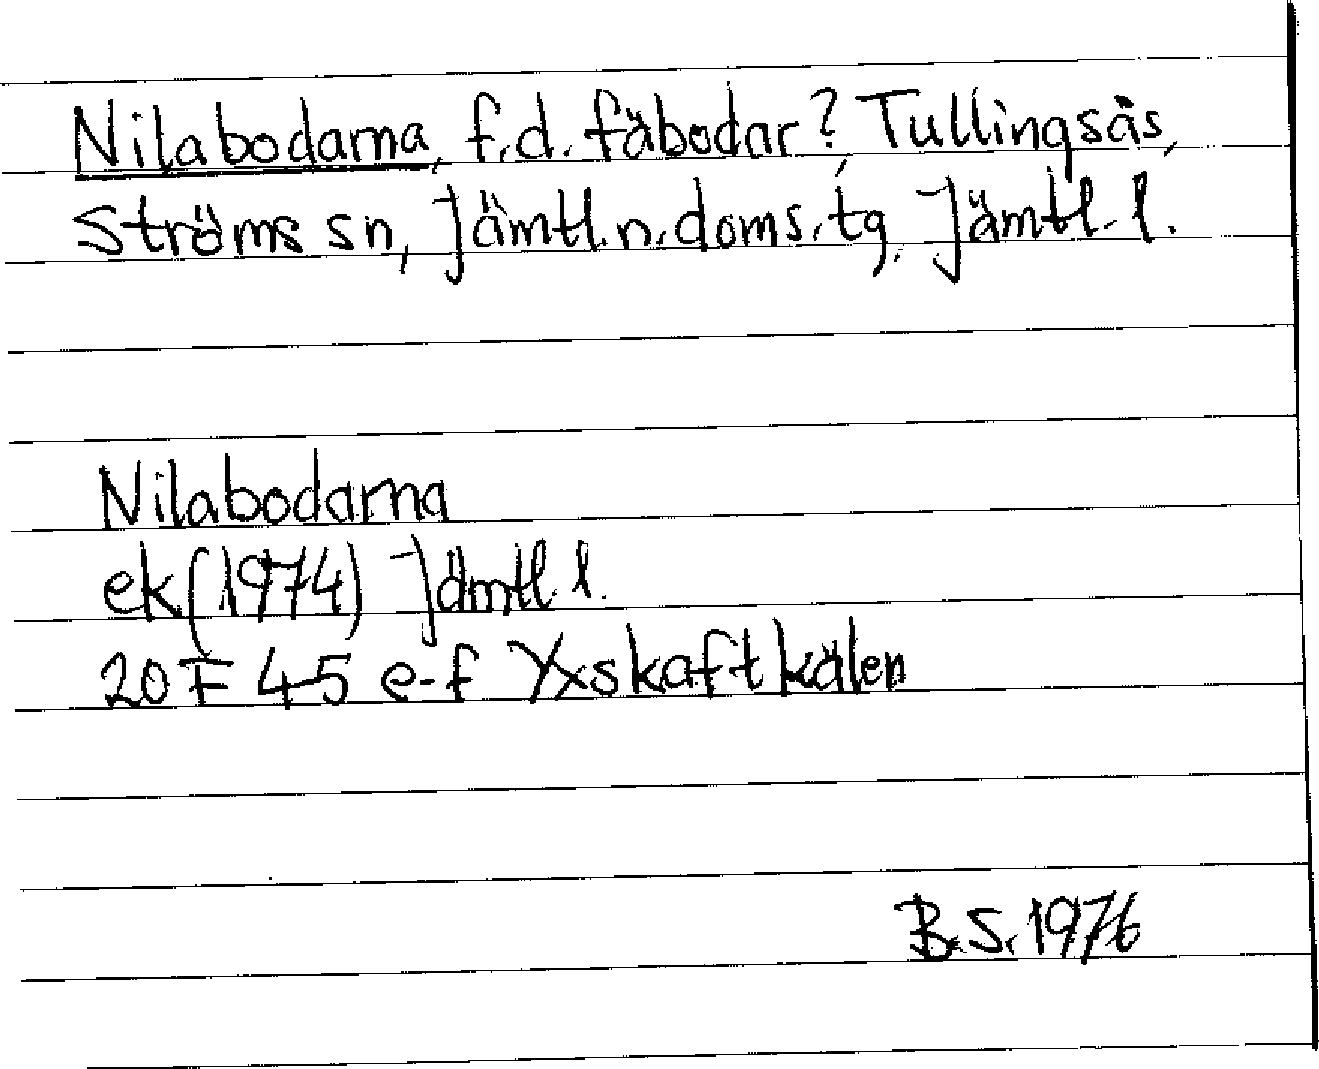 Nilabodarna, f.d. fäbodar? Tullingsås,
Ströms sn, Jämtl.n.doms.tg. Jämtl.l.
Nilabodarna
ek (1974) Jämtl.l.
20 F 4-5 e-f Yxskaftkälen
B.S. 1976